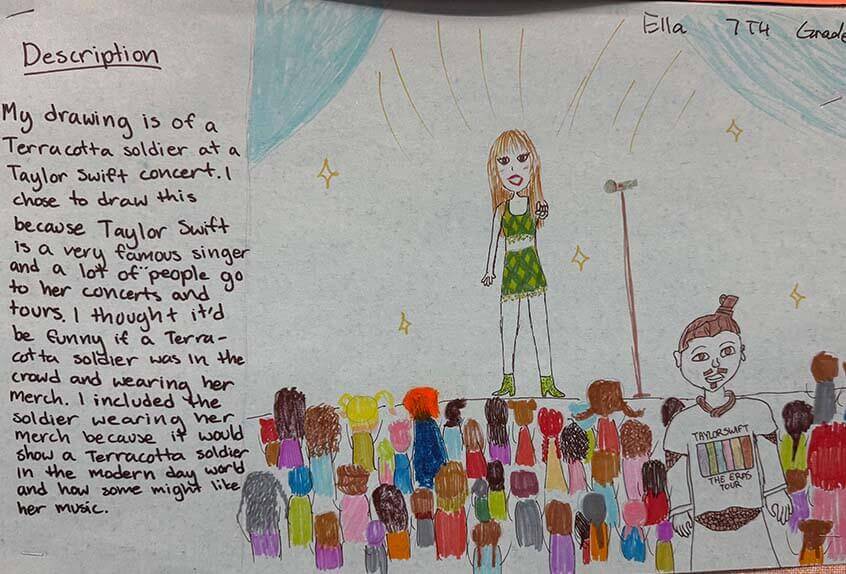 Ella 7TH Grade
Description
My drawing is of a
Terracotta soldier at a
Taylor Swift concert. I
chose to draw this
because Taylor Swift
is a very famous singer
and a lot of people go
to her concerts and
tours. I thought it'd
be funny if a Terra-
cotta soldier was in the
crowd and wearing her
merch. I included the
soldier wearing her
merch because it would
show a Terracotta soldier
in the modern day world
and how some might like
her music.
TAYLOR SWIFT
THE ERAS
TOUR